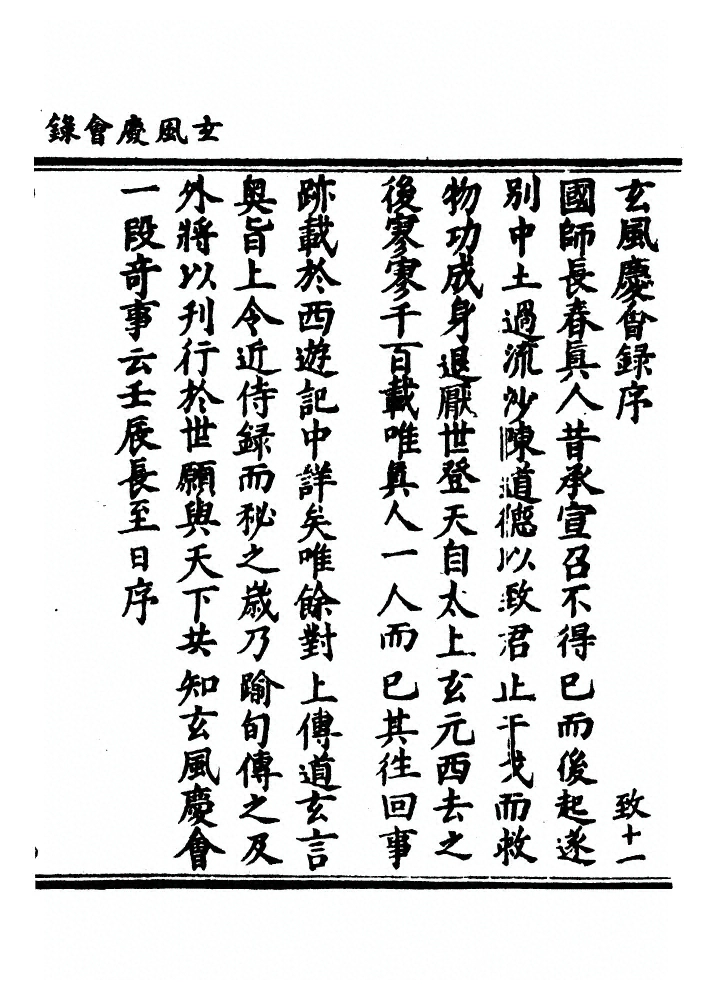 玄風慶會錄
玄風慶會録序
致十一
國師長春真人昔承宣召不得已而後起遂
別中土過流沙陳道德以致君止干戈而救
物功成身退厭世登天自太上玄元西去之
後寥寥千百載唯真人一人而已其徃回事
跡載於西遊記中詳矣唯餘對上傳道玄言
奥旨上令近侍録而秘之歲乃踰旬傳之及
外將以刊行於世願與天下共知玄風慶會
一段奇事云壬辰長至日序